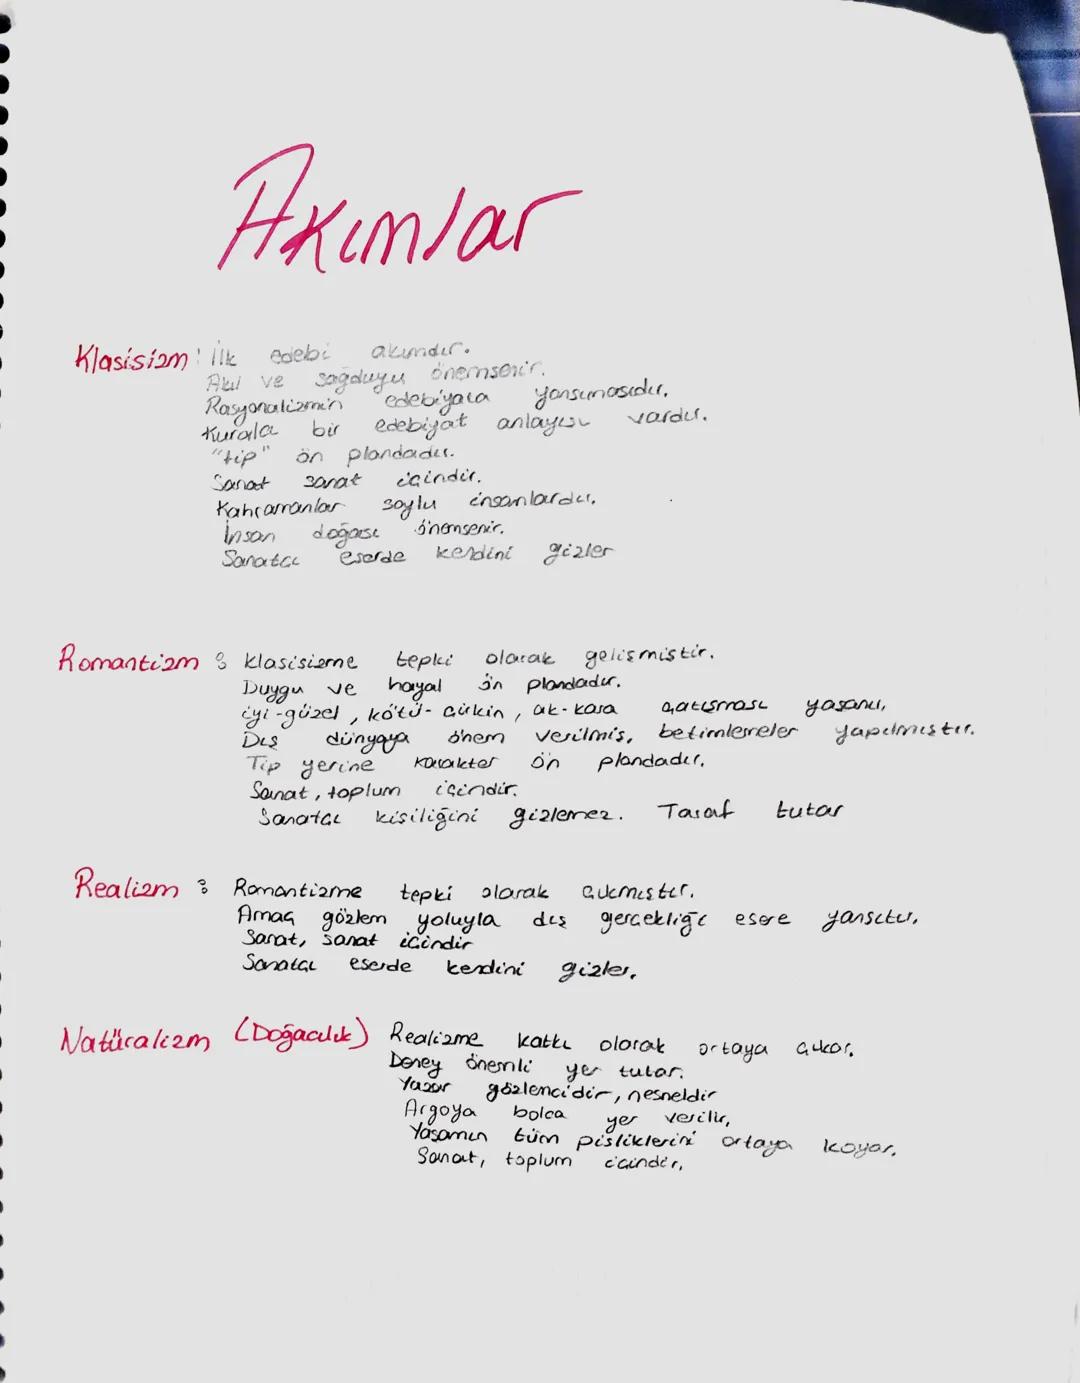 Akımlar
Klasisizm: İlk edebi akımdır.
Akıl ve sağduyu önemsenir.
Rasyonalizmin edebiyata yansımasıdır.
Kuralcı bir edebiyat anlayışı vardır.
"tip" ön plandadır.
Sanat sanat içindir.
Kahramanlar soylu insanlardır.
İnsan doğası önemsenir.
Sanatçı eserde kendini gizler
Romantizm : klasisizme tepki olarak gelişmiştir.
Duygu ve hayal ön plandadır.
iyi-güzel, kötü-çirkin, ak-kara çatışması yaşanır.
Dış dünyaya önem verilmiş, betimlemeler yapılmıştır.
Tip yerine karakter ön plandadır.
Sanat, toplum içindir.
Sanatçı kişiliğini gizlemez. Taraf tutar
Realizm : Romantizme tepki olarak çıkmıştır.
Amaç gözlem yoluyla dış gerçekliği esere yansıtır.
Sanat, sanat içindir
Sanatçı eserde kendini gizler.
Natüralizm (Doğacılık) Realizme katkı olarak ortaya çıkar.
Deney önemli yer tutar.
Yazar gözlemcidir, nesneldir
Argoya bolca yer verilir.
Yaşamın tüm pisliklerini ortaya koyar.
Sanat, toplum içindir.